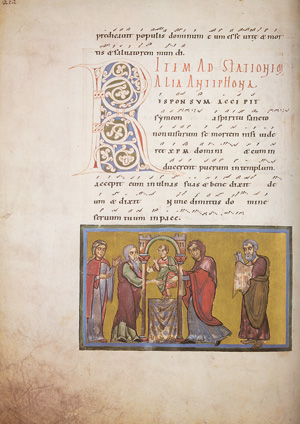 predicavit populis dominum eum esse vitæ & mor
tis & salvatorem mundi.
ITEM AD STATIONEM
ALIA ANTIPHONA.
RESPONSVM ACCEPIT
symeon a spiritu sancto
non visurum se mortem nisi vide
ret XPM domini & cum in
ducerent puerum in templum
accepit eum in ulnas suas & benedixit de
um & dixit Nunc dimittis domine
servum tuum in pace.